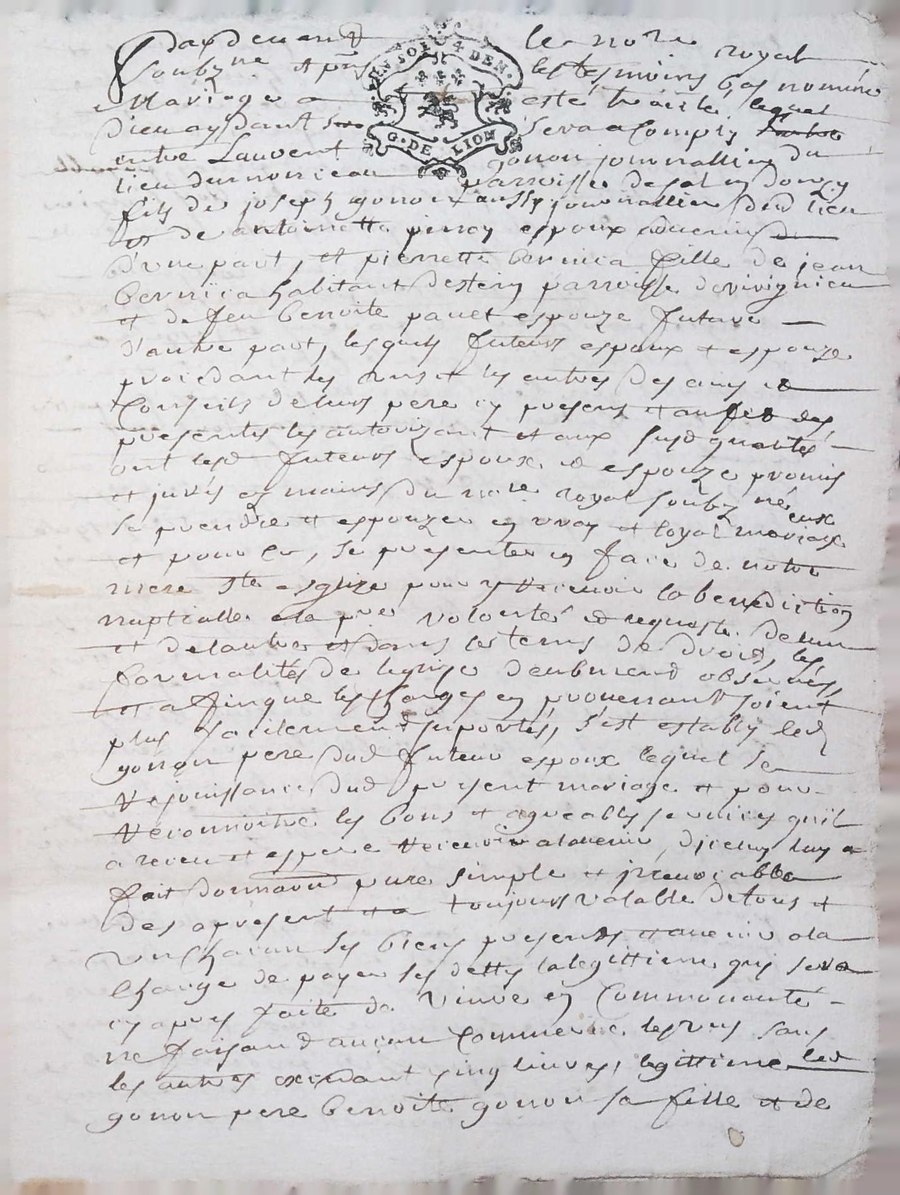 Pardevant le no.re royal
soubzne et pnts les tesmoins bas nommé
Mariage a esté traité lequel
Dieu aydant sera acomply
entre Laurent gonon journallier du
lieu du parroisse de
fils de joseph gonon aussy journallier dud lieu
et de antoinette epoux
d'une part, et pierrette bernica fille de jean
bernica habitant destein parroisse
et de feu benoite panet espouze future
d'autre part, lesquels futeurs espoux et espouze
procedant les uns et les autres des avis et
conseils de leurs pere cy present et aux fins des
presentes les autorizant et aux susd quantés
ont lesd futeurs espoux et espouze promis
et jurés es mains du no.re royal soubzné
se prendre et espouzer en vray et loyal mariage
eux
et pour ce, se presenter en face de notre
mere ste esglize pour y recevoir la benediction
nuptialle a la pre volonté et requeste de lun
et delautre et dans les tems de droit, les
formalités de leglise deubment observés,
et affinque les charges en provenant soient
plus facilement suportés, s'est estably led
gonon pere dud futeur espoux lequel se
rejouissance dud present mariage et pour
reconnoitre les bons et agreables services quil
a receu et espere recevoir alavenir, dicelluy luy a
fait donnaon pure simple et irrevocable
des apresent et a toujours valable de tous et
un chacun ses biens presents et avenir ala
charge de payer ses dettes la legittime quy sera
cy apres faite de vivre en communauté
ne faisant aucun commerce les uns sans
les autres excedant cinq livres, legittime led
gonon pere benoite gonon sa fille et de
EN SOL 4 DEN.
G. DE LION